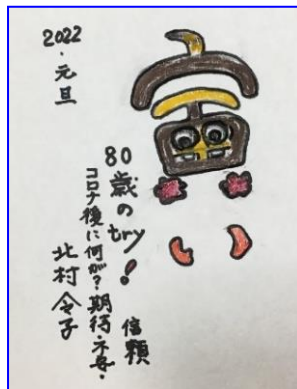 2022・元旦
寅
80歳のtry!
コロナ後に何が?期待・不安・
信頼
北村令子